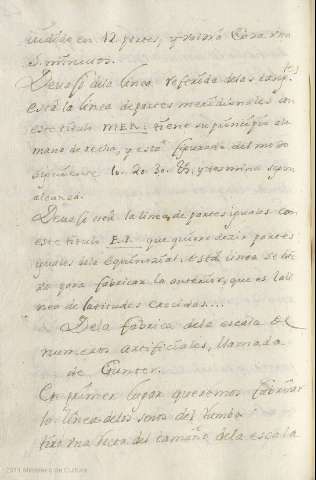 en 12 partes, y valdrá Cada una
5 minutos.
Devaso dela linea referida delas tang.tes
está la linea de partes meridionales con
este titulo MER: tiene su principio ala
mano derecha, y está figurada del modo
siguiente 10. 20. 30. &. y termina segun
alcanza.
Devaso está la linea de partes iguales con
este titulo E.P. que quiere dezir partes
iguales dela Equinozial. esta linea se
para fabricar la anterior, que es la li
nea de latitudes crecidas...
Dela fabrica dela escala de
numeros artificiales, llamada
de Gunter.
En primer lugar queremos fabricar
la linea delos senos del rumbo
tira una recta del tamaño dela escala
2011 Ministerio de Cultura